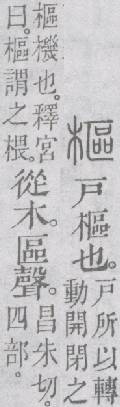 樞戶樞也。
戶所以轉
動開閉之
樞機也。釋宮
曰。樞謂之椳。
從木。區聲。
昌朱切。
四部。